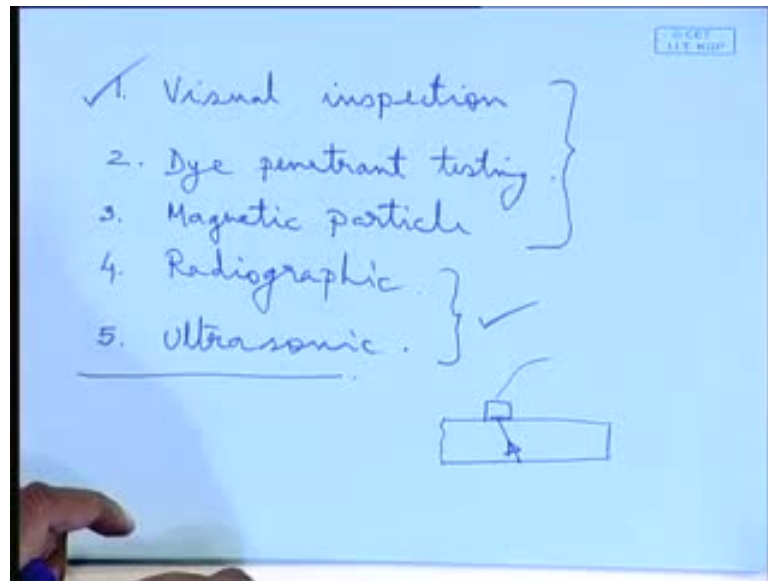 © CET
I.I.T. KGP
1. Visual inspection
2. Dye penetrant testing.
3. Magnetic particle
4. Radiographic.
5. Ultrasonic.